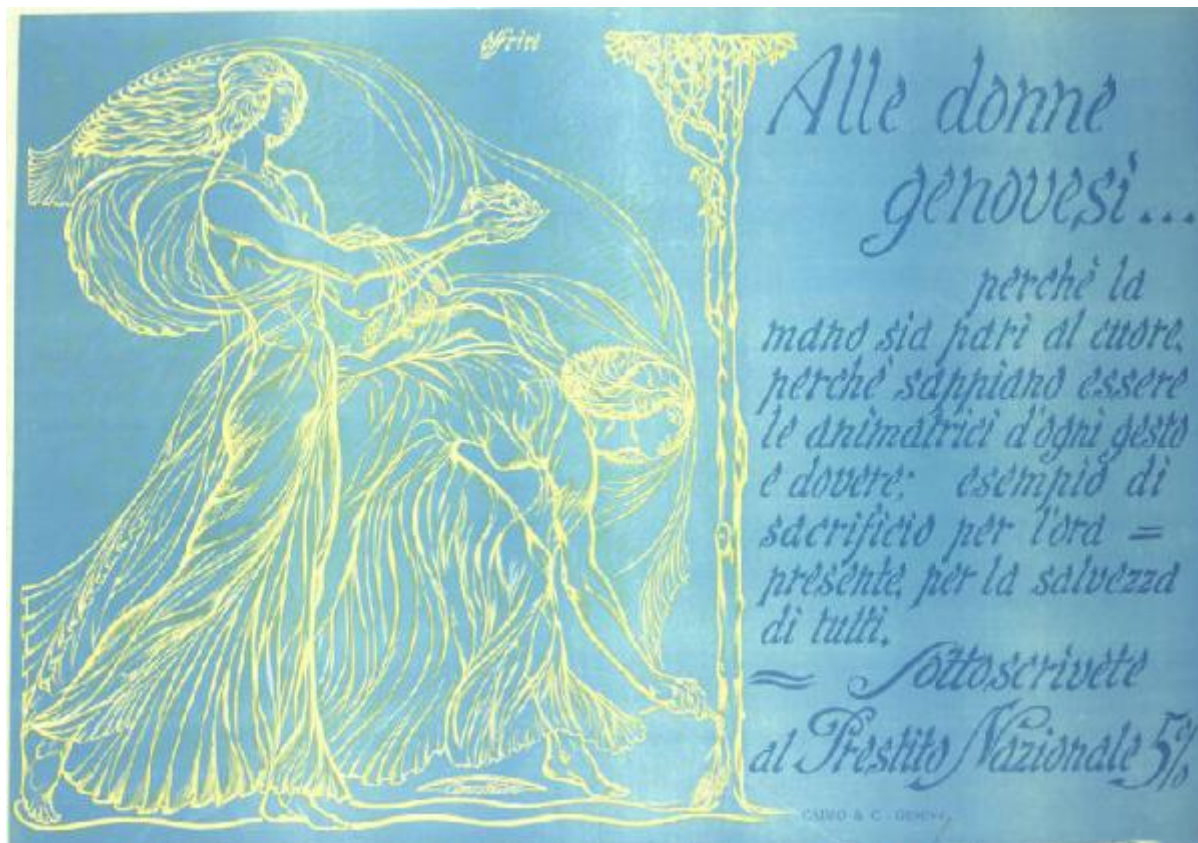 offrire
Alle donne
genovesi...
perchè la
mano sia pari al cuore,
perchè sappiano essere
le animatrici d'ogni gesto
e dovere; esempio di
sacrificio per l'ora =
presente, per la salvezza
di tutti.
= Sottoscrivete
al Prestito Nazionale 5%
& C - GENOVA